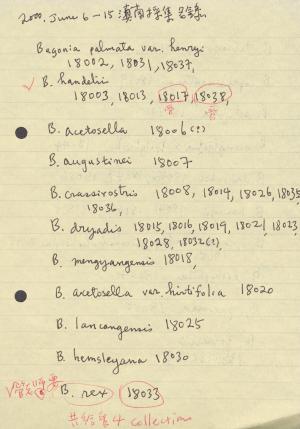 2000. June 6-15 滇南採集名錄
Begonia palmata var. henryi
18002, 18031, 18037,
B. handelii
18003, 18013, 18017, 18038,
B. acetosella 18006(?)
B. augustinei 18007
B. crassirostris 18008, 18014, 18026, 18035
18036,
B. dryadis 18015, 18016, 18019, 18021, 18023,
18028, 18032(?),
B. mengyangensis 18018,
B. acetosella var. hirtifolia 18020
B. lancangensis 18025
B. hemsleyana 18030
B. rex 18033
共給 4 collections